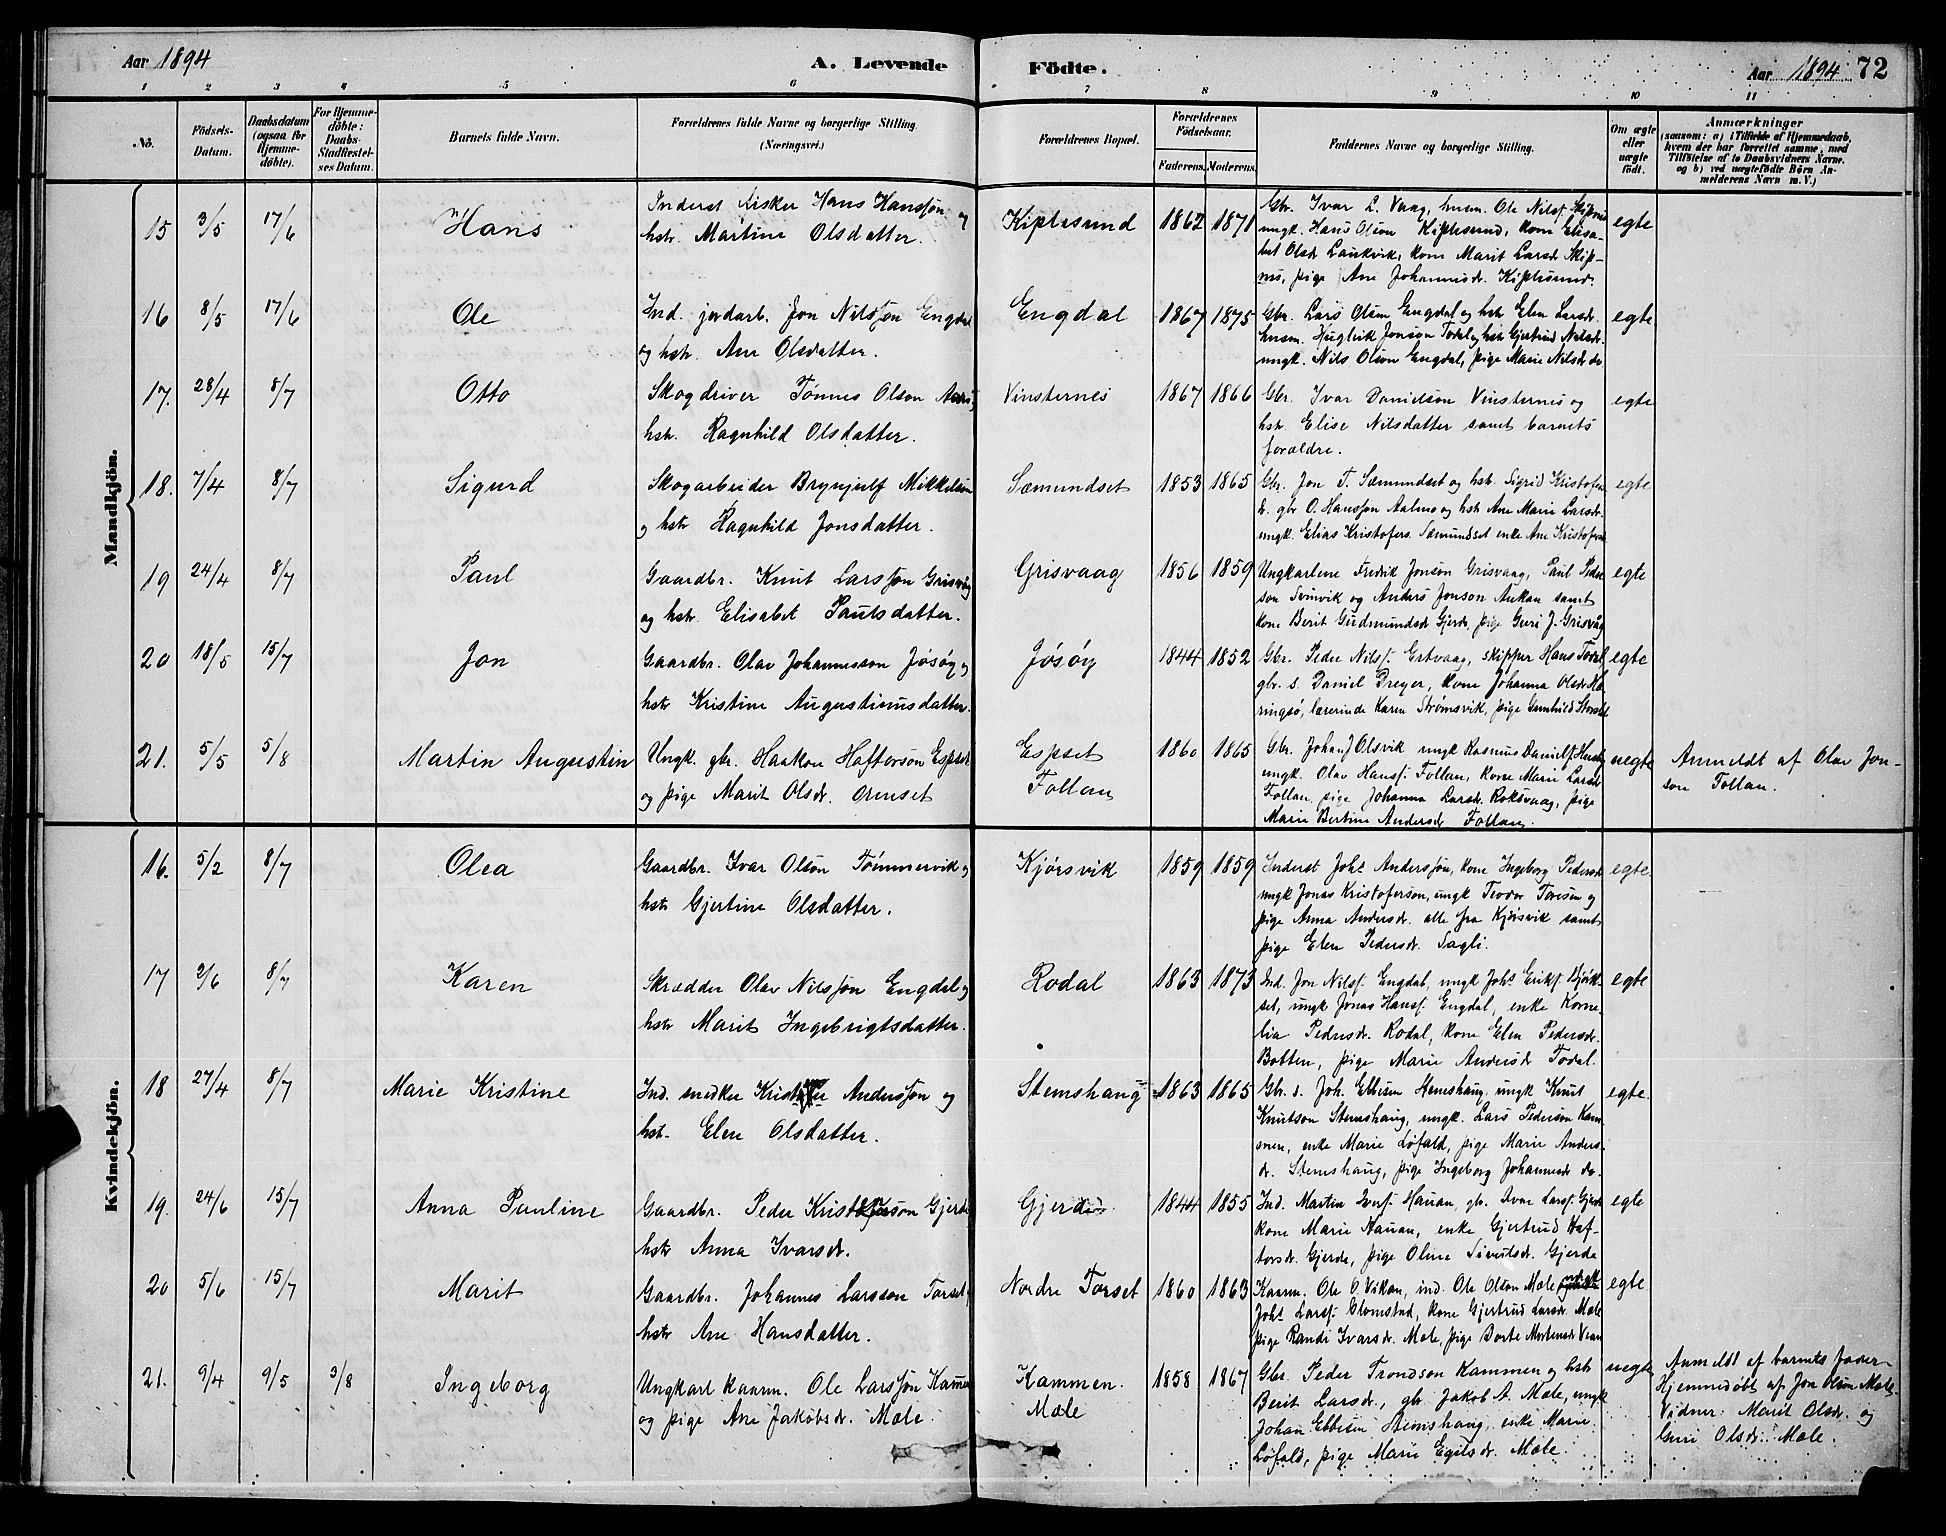 Aar 1894
A. Levende Födte.
Aar 1894 72
1 2 3 4 5 6 7 8 9 10 11
No.
Födsels-
Datum.
Daabsdatum
(ogsaa for
Hjemme-
döbte).
For Hjemme-
döbte:
Daabs-
Stadfæstel-
ses Datum.
Barnets fulde Navn.
Forældrenes fulde Navne og borgerlige Stilling.
(Næringsvei.)
Forældrenes Bopæl.
Forældrenes
Födselsaar.
Faderens. Moderens.
Faddernes Navne og borgerlige Stilling.
Om ægte
eller
uægte
födt.
Anmærkninger
(saasom: a) i Tilfælde af Hjemmedaab,
hvem der har forrettet samme, med
Tilföielse af to Daabsvidners Navne.
og b) ved uægtefödte Börn An-
melderens Navn m. V.)
Mandkjön.
15 3/5 17/6 Hans
Inderst fisker Hans Hansson og
hstr. Martine Olsdatter.
Kiplesund 1862 1871
Gbr. Ivar L. Vaag, husm. Ole Nilss. Skipnes
ungk. Hans Olson Kiplesund, kone Elisa-
bet Olsdr Laukvik, kone Marit Larsd. Skip-
nes, pige Ane Johannesdr. Kiplesund.
egte
16 8/5 17/6 Ole
Ind. jordarb. Jon Nilsson Engdal
og hstr. Ane Olsdatter.
Engdal 1867 1875
Gbr. Lars Olson Engdal og hstr Elen Larsdr.
husm. Hugleik Jonson Todal og hstr Gjertrud Nilsdr.
ungk. Nils Olson Engdal, pige Marie Nilsdr do
egte
17. 28/4 8/7 Otto
Skogdriver Tønnes Olson
hstr. Ragnhild Olsdatter.
Vinsternes 1867 1866
Gbr. Ivar Danielson Vinsternes og
hstr. Elise Nilsdatter samt barnets
forældre.
egte
18. 7/4 8/7 Sigurd
Skogarbeider Brynjulf Mikkelson
og hstr Ragnhild Jonsdatter.
Sæmundset 1853 1865
Gbr. Jon T. Sæmundset og hstr. Sigrid Kristofers
d. gbr O. Hansson Aalmo og hstr Ane Marie Larsdr.
ungk. Elias Kristofers. Sæmundset enke Ane Kristofers
egte
19 24/4 8/7 Paul
Gaardbr. Knut Larsson Grisvåg
og hstr. Elisabet Paulsdatter.
Grisvaag 1856 1859
Ungkarlene Fredrik Jonson Grisvaag, Paul Peder
son Svinvik og Anders Jonson Aukan samt
kone Berit Gudmundsdr Gjerde, pige Guri J. Grisvåg
egte
20 18/5 15/7 Jon
Gaardbr. Olav Johannesson Jøsøy og
hstr Kristine Augustinusdatter.
Jøsøy 1844 1852
Gbr. Peder Nilss. Ertvaag, skipper Hans Todal
gbr. s. Daniel Dreyer, kone Johanna Olsdr Ha-
ringsø, lærerinde Karen Strømsvik, pige Gunhild
egte
21. 5/5 5/8 Martin Augustin
Ungk. gbr. Haakon Haftorson Espset
og pige Marit Olsdr. Orenset
Espset
Follan
1860 1865
Gbr. Johan J Olsvik ungk Rasmus Daniels.
ungk. Olav Hanss. Follan, kone Marie Larsdr
Follan, pige Johanna Larsdr. Roksvaag, pige
Marie Bertine Andersdr Follan.
uegte
Anmeldt af Olav Jon-
son Follan.
Kvindekjön.
16. 5/2 8/7 Olea
Gaardbr. Ivar Olson Tømmervik og
hstr Gjertine Olsdatter.
Kjørsvik 1859 1859
Inderst Johs Andersson, kone Ingeborg Pedersdr
ungk Jonas Kristoferson, ungk Teodor Toresen og
pige Anna Andersdr. alle fra Kjørsvik samt
pige Elen Pedersdr. Sagli.
egte.
17 2/6 8/7 Karen
Skrædder Olav Nilsson Engdal og
hstr Marit Ingebrigtsdatter.
Rodal 1863 1873
Ind. Jon Nilss. Engdal, ungk Johs Erikss. Bjørk-
set, ungk Jonas Hanss. Engdal, enke Korne-
lia Pedersdr. Rodal, kone Elen Pedersdr.
Botten, pige Marie Andersd Todal.
egte
18 27/4 8/7 Marie Kristine
Ind. snedker Andersson og
hst. Elen Olsdatter.
Stemshaug 1863 1865
Gbr. s. Joh. Ebbesen Stemshaug, ungk Knut
Knutson Stemshaug, ungk. Lars Pederson Kam-
men, enke Marie Løfald, pige Marie Anders-
dr. Stemshaug, pige Ingeborg Johannesdr do.
egte.
19. 24/6 15/7 Anna Pauline
Gaardbr. Peder Kristoferson Gjerde
hstr Anna Ivarsdr.
Gjerde 1844 1855
Ind. Martin Iverss. Hauan, gbr. Ivar Larss. Gjerde
kone Marie Hauan, enke Gjertrud Haf-
torsdr. Gjerde, pige Oline Sivertsdr. Gjerde
egte
20 5/6 15/7 Marit
Gaardbr. Johannes Larsson Torset,
hstr Ane Hansdatter.
Nordre Torset 1860 1863
Kaarm. Ole O. Vikan, ind. Ole Olson Mæle
Johs Larss. Glomstad, kone Gjertrud Larsdr. Mæle
pige Randi Ivarsdr. Mæle, pige Dorte Mortensdr
egte
21. 9/4 9/5 3/8 Ingeborg
Ungkarl kaarm. Ole Larsson Kammen
og pige Ane Jakobsdr. Mæle.
Kammen.
Mæle
1858 1867
Gbr. Peder Trondson Kammen og hstr
Berit Larsdr., gbr Jakob A. Mæle, ungk
Johan Ebbesen Stemshaug, enke Marie
Løfald, pige Marie Egilsdr. Mæle.
uegte
Anmeldt af barnets fader
Hjemmedøbt af Jon Olson Mæle.
Vidner: Marit Olsdr. og
Guri Olsdr. Mæle.